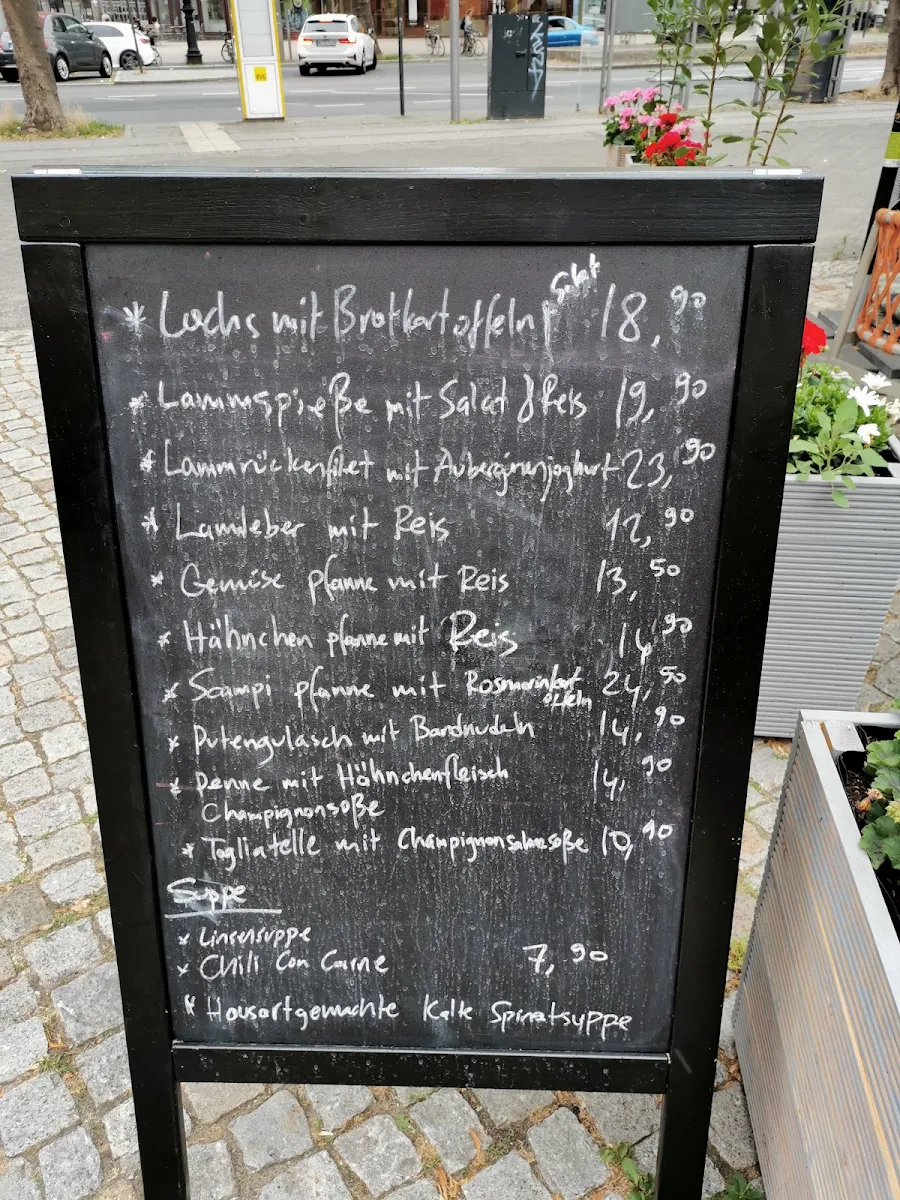 BVG
* Lachs mit Bratkartoffeln / Salat 18,90
* Lammspieße mit Salat & Reis 19,90
* Lammrückenfilet mit Auberginenjoghurt 23,90
* Lamleber mit Reis 12,90
* Gemüse pfanne mit Reis 13,50
* Hähnchen pfanne mit Reis 14,90
* Scampi pfanne mit Rosmarinkart 24,50
offeln
* Putengulasch mit Bandnudeln 14,90
* Penne mit Hähnchenfleisch 14,90
Champignonsoße
* Tagliatelle mit Champignonsahnesoße 10,90
Suppe
* Linsensuppe
* Chili Con Carne 7,90
* Hausartgemachte Kalte Spinatsuppe